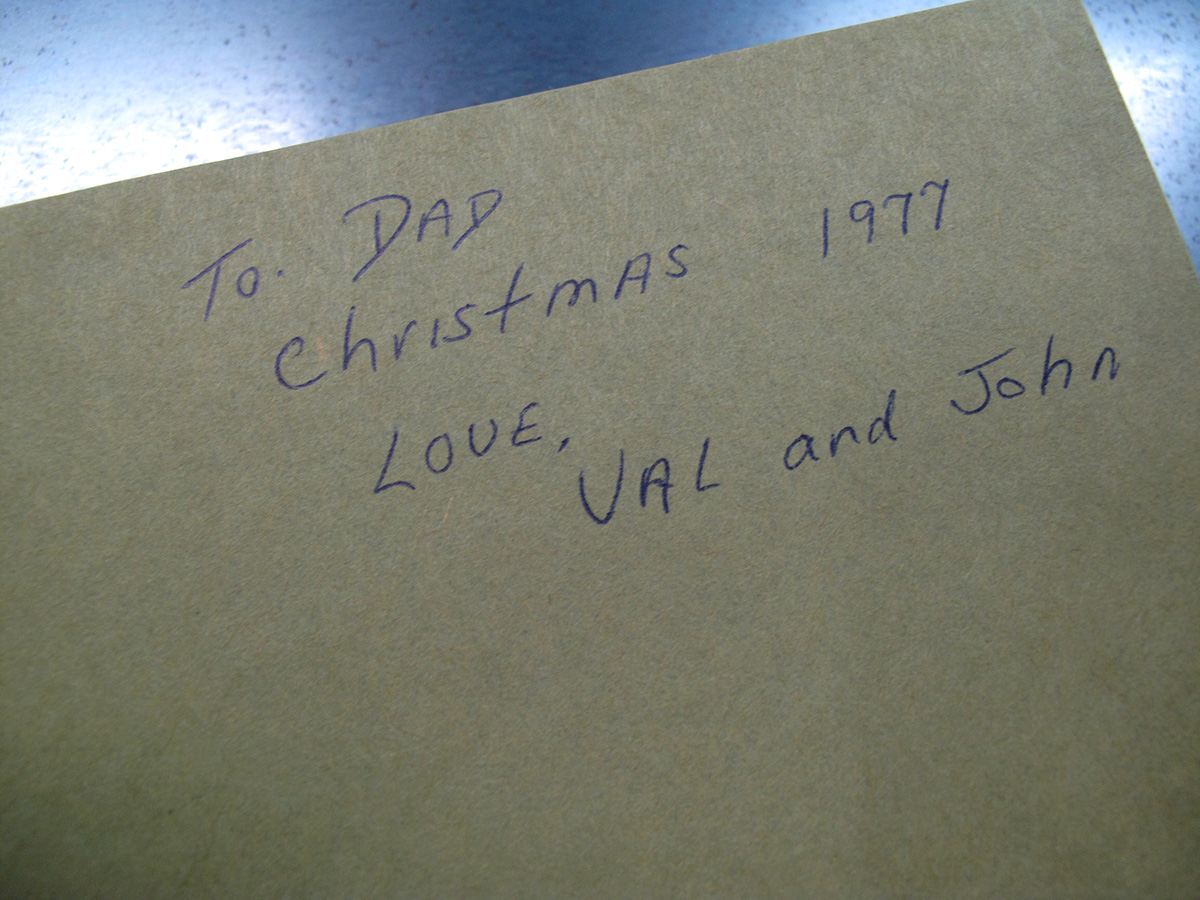 To. DAD
Christmas 1977
LOVE,
VAL and John